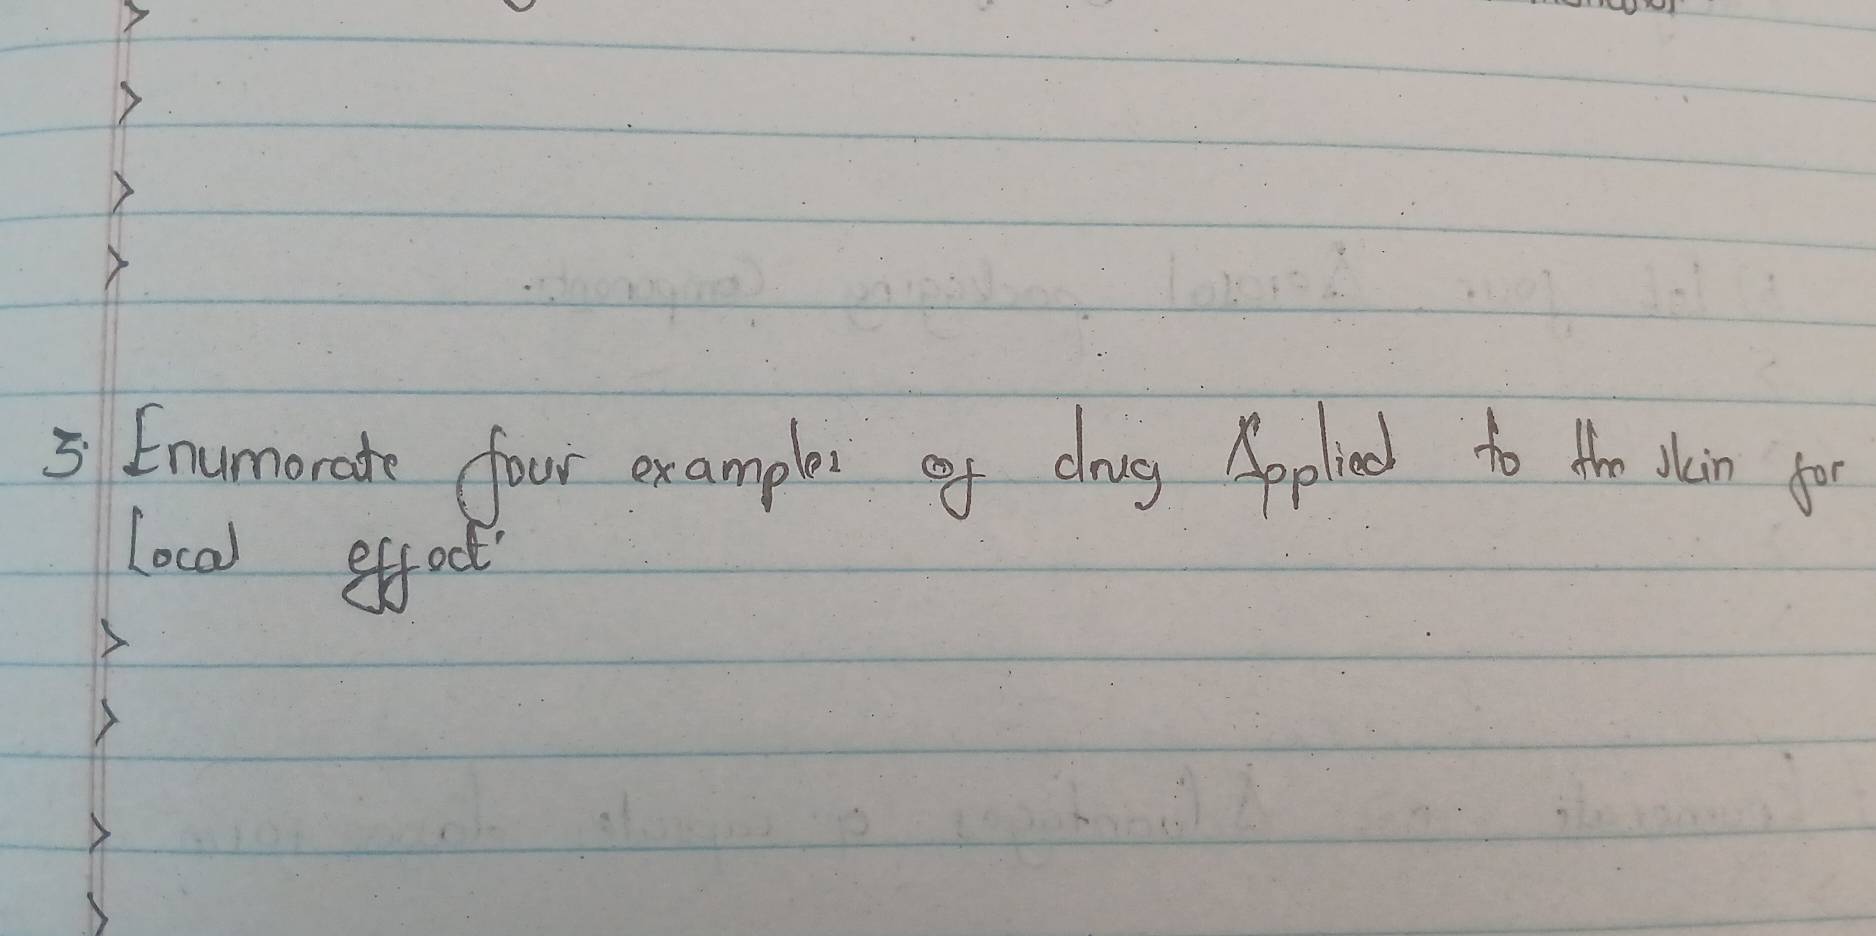 >
>
>
>
3. Enumorate four examples of drug Applied to the skin for
Local effect.
>
>
>
>